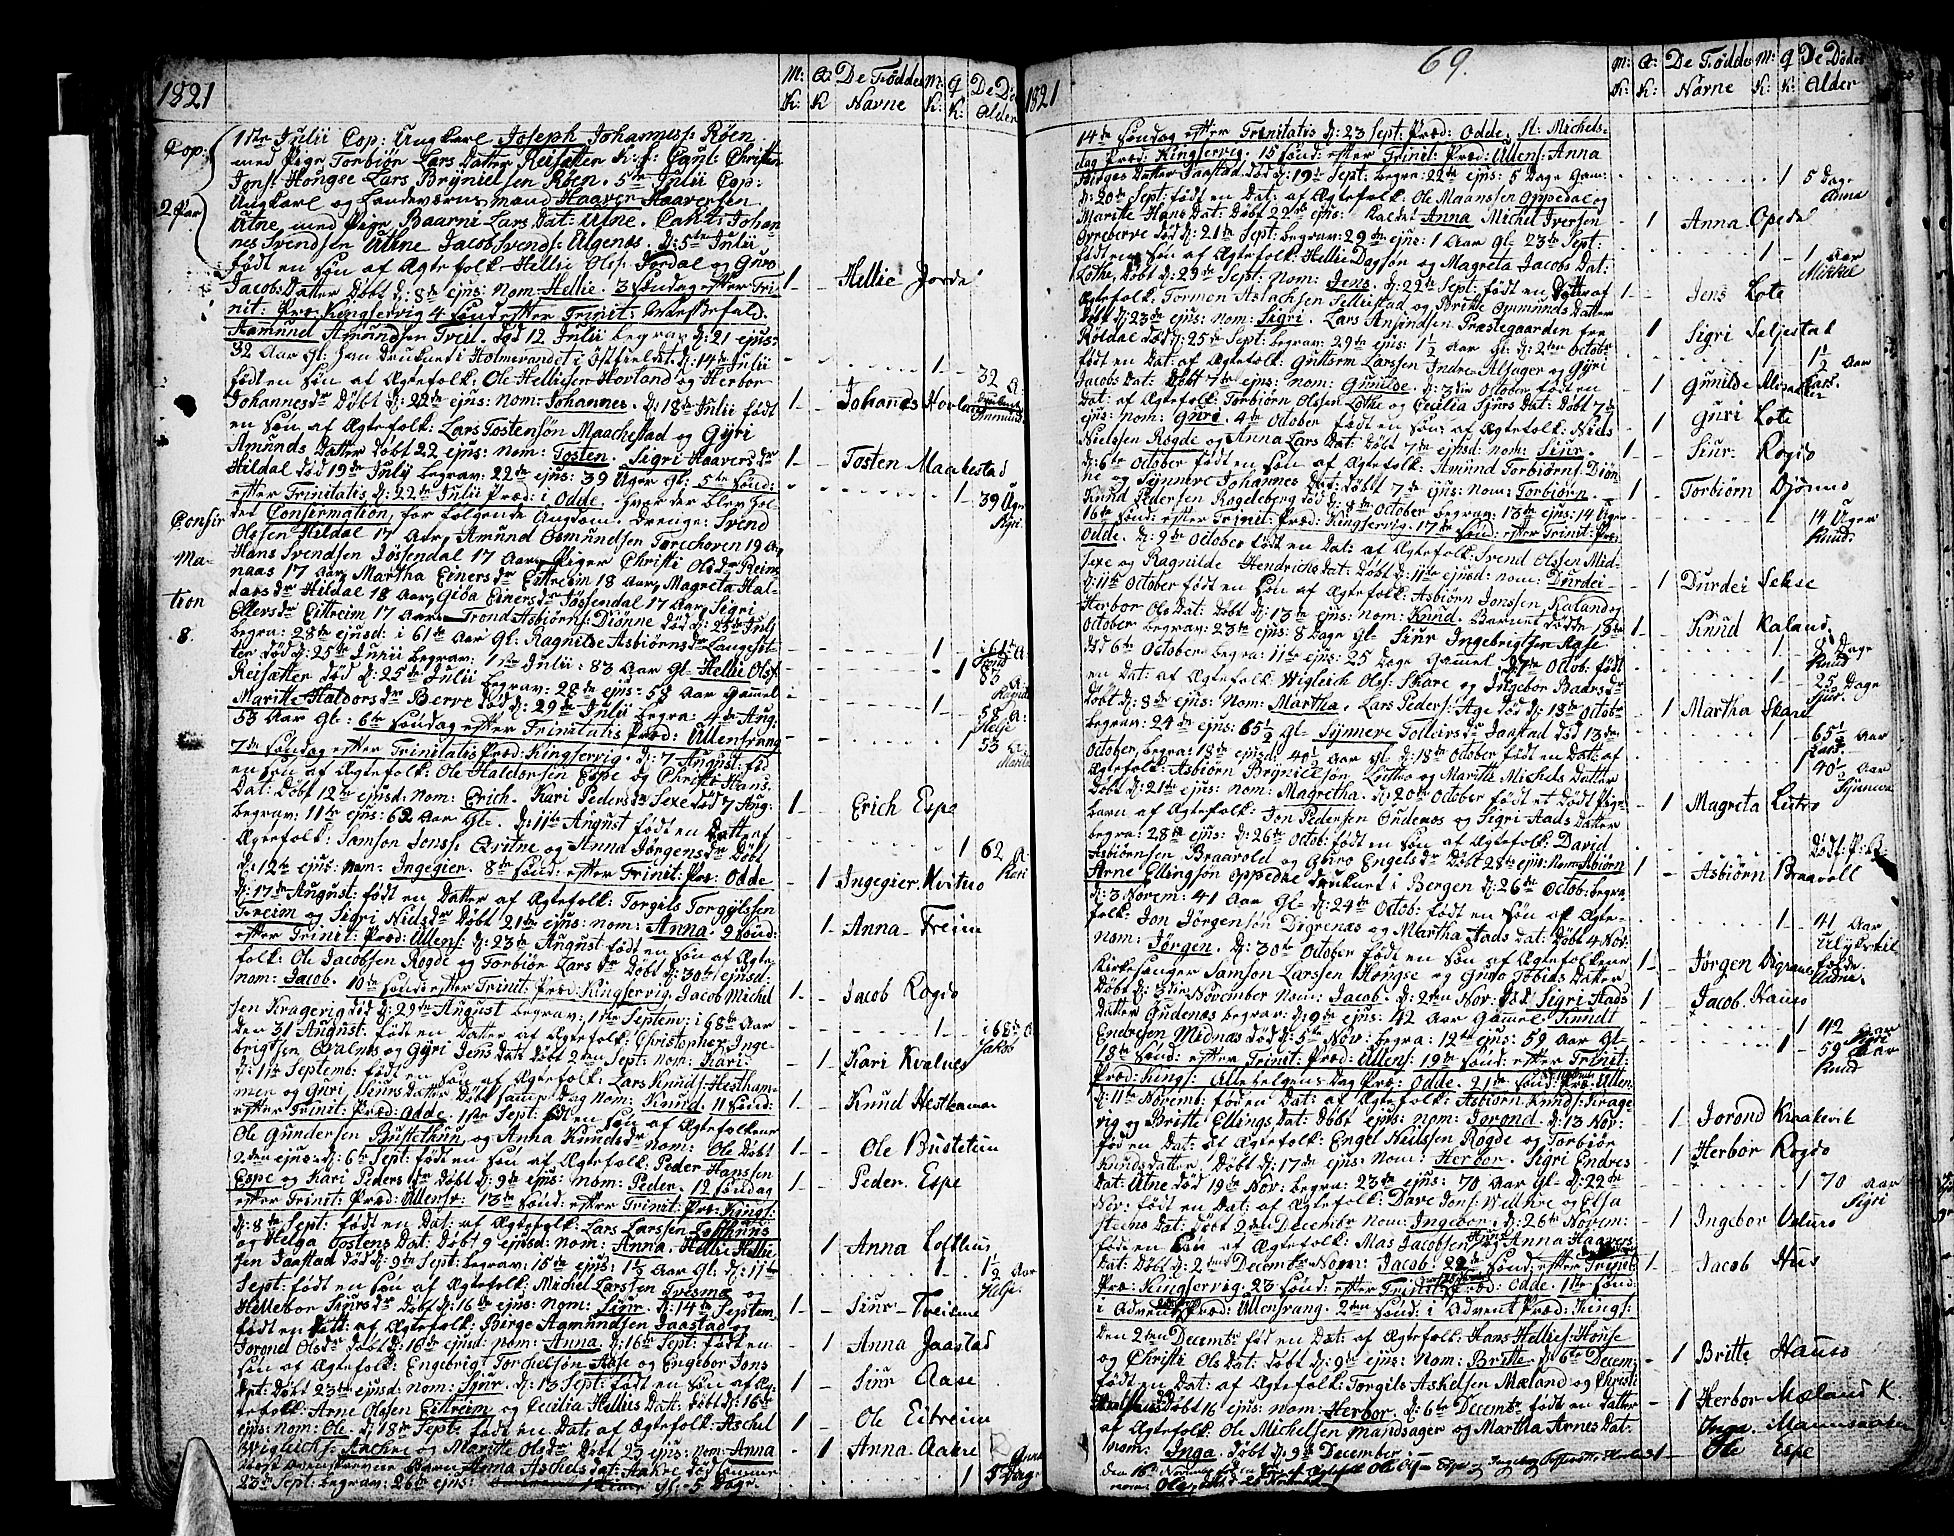 1821
M: K: Q: K De Føddes Navne M: K: Q K: De Dø Alder
Cop:
2 Par
1ste Julii Cop: Ungkarl Joseph Johanness: Røen
med Pige Torbiør Lars Datter Reisæter
Jons: Hougse Lars Brynielsen Røen. 5te Julii Cop:
Ungkarl og Landeværns mand Haaver Haaversen
Utne med Pige Baarni Lars Dat: Utne. Caut: Johan-
nes Svendsen Utne Jacob Svends: Algenæs. D: 5te Julii
født en Søn af Ægtefolk Hellie Ols: Jordal og Guro
Jacobs Datter Døbt d: 8de ejus: Nom: Hellie. 3 Søndag efter Tri-
nit: Præ: Kingservig 4 Sond efter Trinit:
Aamund Amundsen Treit. død 12 Julii begrav: d: 21 ejus:
32 Aar Gl: d: 14de Julii
født en Søn af Ægtefolk: Ole Helliesen Hovland og Herbor
Johannesdr Døbt d: 22de ejus: nom: Johannes. d: 18de Julii født
en Søn af Ægtefolk: Lars Tostensøn Maachestad og Gyri
Amunds Datter døbt 22 ejus: nom: Tosten. Sigri Haaversdr
Hildal død 19de Julii begrav: 22de ejus: 39 Uger Gl: 5te Sønd:
efter Trinitatis d: 22de Julii Præd: i Odde. hvor der blev hol-
det Confirmation, for følgende Ungdom. Drenge: Svend
Olsen Hildal 17 Aar, Amund Osmundsen 19 Aar
Hans Svendsen Jøsendal 17 Aar, Piger Christi Olsdr Reim
naas 17 Aar, Martha Einersdr Eittreim 18 Aar, Magreta Hal-
darsdr Hildal 18 Aar, Giøa Einersdr Jøssendal 17 Aar, Sigri
Ellersdr Eittreim 17 Aar. Trond Asbiørns: Diønne død d: 25de Julii
begra: 28de ejusd: i 61de Aar Gl: Ragnilde Asbiørnsdr Langesæt
ter død d: 25de Junii begrav: 1ste Julii: 83 Aar Gl- Hellie Ols:
Reisæter død d: 25de Julii begrav: 28de ejus: 58 Aar Gamel
Maritte Haldorsdr Berve død d: 29de Julii begra: 4de Aug:
53 Aar Gl: 6te Søndag efter Trinitatis Præd: Ullensvang
7de Søndag efter Trinitatis Præd: Kingservig. d: 7 August: fø
en søn af Ægtefolk: Ole Haldorsen Espe og Christi Hans.
Dat: Døbt 12te ejusd: nom: Erich. Kari Pedersdr Sexe død 7 Aug:
begrav: 11te ejus: 62 Aar Gl. d: 11te August født en Datt: af
Ægtefolk: Samson Jonss: Qvitne og Anna Jørgensdr Døbt
d: 12te ejus: nom: Ingegier. 8de Sønd: efter Trinit: Præ: Odde
d: 17de August: født en Datter af Ægtefolk: Torgils Torgilssen
Freim og Sigri Nielsdr Døbt 21de ejus: nom: Anna. 9 Sønd:
efter Trinit: Præd: Ullens: d: 23de August født en Søn af Ægte-
folk: Ole Jacobsen Rogde og Torbiør Larsdr Døbt d: 30te ejusd:
nom: Jacob. 10de Sønd: efter Trinit: Præd: Kingservig. Jacob Michel
sen Kragevig død d: 29de August begrav: 1ste Septemb: i 68de Aar
den 31 August. født en Datter af Ægtefolk: Christopher Inge-
brigtsen Qvalnæs og Gyri Jens Dat: døbt 2den Sept: nom: Kari
d: 1ste Septemb: født en Søn af Ægtefolk: Lars Knuds: Hestham-
mer og Guri Siurs Datter Døbt samme Dag nom: Knud. 11 Sønd:
efter Trinit: Præd: Odde. 1ste Sept: født en søn af Ægtefolkene
Ole Gundersen Bustethun og Anna Knudsdr nom: Ole Døbt
2den ejus: d: 6te Sept: født en søn af Ægtefolk: Peder Hanssen
Espe og Kari Pedersdr Døbt d: 9de ejus: nom: Peder. 12 Søndag
efter Trinit: Præd: Ullensv: 13de Sønd: efter Trinit: Præ: Kings:
d: 8de Sept: født en Dat: af Ægtefolk: Lars Larssen Lofthuus
og Helga Tostens Dat: Døbt 9 ejusd: nom: Anna. Hellie Hellie
sen Jaastad død d: 9de Sept: begrav: 15de ejus: 1½ Aar Gl: d: 11te
Sept: født en Søn af Ægtefolk: Michel Larsen
Hillebor Siursdr Døbt d: 16de ejus: nom: Siur. d: 14de Septem
født en Dat: af Ægtefolk: Birge Aamundsen Jaastad og
Jorond Olsdr døbt d: 16de ejusd: nom: Anna. d: 16de Sept: født en
søn af Ægtefolk: Engebrigt Torchelsøn Aase og Engebor Jons
Dat: Døbt 23de ejusd: nom: Siur. d: 13 Sept: født en søn af Æg-
tefolk: Arne Olssen Eittreim og Cecilia Hellies Dat: døbt d: 16de
nom: Ole. d: 18de Sept: født en Dat: af Ægtefolk: Aschel
Wiglichs: Anchre og Maritte Olsdr Døbt 23 ejus: nom: Anna
Anna Aschels dat: Ankre død samme
23de Sept: begrav: 26de ejus: Gl. 5 Dage.
Confir
Ma-
tion
8.
1 - Hellie Jorda
1 32 A:
1 - Johanes Hovland Aamund
1 - Tosten Maakestad
1 39 Uger Sigri
1 i 61de A Trond
1 83 A: Ragnilde
1 58 A: Helje
1 53 A: Marita
1 - Erich Espe
1 62 A: Kari
1 Ingegier Kvitno
1 - Anna - Freim
1 - Jacob Rogdo
1 - i 68de A Jakob
1 Kari Kvalnes
1 - Knud Hesthamar
1 - Ole Bustetun
1 - Peder. Espe
1 Anna Lofthus
1 1½ Aar Helje
1 - Siur - Treinne
1 Anna Jaastad
1 - Siur Aase
1 - Ole Eitreim
1 Anna. Aakre
Anna
1 5 Dage
1821
69.
M: K: Q: K: De Fødde Navne M: K. Q K. De Døde Alder
14de Søndag efter Trinitatis d: 23 Sept: Præd: Odde. St: Michels-
dag Præd: Kingservig. 15 Sønd: efter Trinit: Præd: Ullens: Anna
Birges Datter Jaastad død d: 19de Sept: begra: 22de ejus: 5 Dage Gam:
d: 20de Sept: født en Dat: af Ægtefolk: Ole Maansen Oppedal og
Marite Hans Dat: Døbt 22de ejus: kaldet Anna Michel Iversen
død d: 21de Sept: begrav: 29de ejus: 1 Aar Gl- 23de Sept:
født en Søn af Ægtefolk: Hellie Dagsøn og Magreta Jacobs Dat:
Løthe, Døbt d: 29de Sept: nom: Jens. d: 22de Sept: født en Datter af
Ægtefolk: Tormon Aslachsen Selliestad og Britte Gumunds Datter
Døbt d: 23de ejus: nom: Sigri. Lars Amundsen Præstegaarden fra
Røldal død d: 25de Sept: begra: 29de ejus: 1½ Aar Gl. d: 2den Octobr
født en Søn af Ægtefolk: Guttorm Larssen Indre-Alsager og Gyri
Jacobs Dat: Døbt 7de ejus: nom: Gunilde. d: 3die October født en
Dat: af Ægtefolk: Torbiørn Olssen Løthe og Cecilia Siurs Dat: Døbt 7de
ejus: nom: Guri. 4de October født en søn: af Ægtefolk: Niels
Nielssen Rogde og Anna Lars Dat: Døbt 7de ejusd: nom: Siur.
d: 6te October født en Søn af Ægtefolk: Amund Torbiørns: Diøn-
ne og Synneve Johannes Dat: døbt 7de ejus: nom: Torbiørn.
Knud Pedersen Rogdeberg død d: 8de October begrav: 13de ejus: 14 Uger
16de Sønd: efter Trinit: Præd: Kingservig. 17de Sønd: efter Trinit: Præ:
Odde. d: 9de October født en Dat: af Ægtefolk: Svend Olssen Mid-
sexe og Ragnilde Hendrichs Dat: Døbt d: 11te ejusd: nom: Durdei-
d: 11te October født en Søn af Ægtefolk: Asbiørn Jonssen Kaland og
Herbor Ols Dat: Døbt d: 13de ejus: nom: Knud. Barnet døde 18de
October begrav: 23de ejus: 8 Dage Gl- Siur Ingebrigtsen Aase
død 6te October begra: 11te ejus: 25 Dage Gamel. d: 7de Octob: født
en Dat: af Ægtefolk: Wigleich Ols: Skare og Ingebor Baarsdr
Døbt d: 8de ejus: nom: Martha. Lars Peders: Age død d: 18de Octobr
begrav: 24de ejus: 65½ Gl- Synneve Tolleivsdr Jaastad død 13de
October, begra: 18de ejusd: 40½ Aar Gl d: 18de October født en Dat: af
Ægtefolk: Asbiørn Brynielsøn Lutho og Maritte Michels Datter
Døbt d: 21de ejus: nom: Magretha. d: 20de October født et dødt Pige-
barn af Ægtefolk: Jon Pedersen Gudenæs og Sigri Aads Datter
begra: 28de ejus: d: 26de Octob: født en søn af Ægtefolk: David
Asbiørnsen Braavold og Guro Engelsdr Døbt 28de ejus: nom: Asbiørn
Arne Ellingsøn Oppedal druknet i Bergen d: 26de Octob: begra:
d: 3 Novem: 41 Aar Gl- d: 24de Octob: født en Søn af Ægte-
folk: Jon Jørgensøn Digrenæs og Martha Aads Dat: Døbt 4 Nov:
nom: Jørgen. d: 30te October født en søn af Ægtefolkene
Kirkesanger Samson Larssen Hougse og Guro Tobias Datter
Døbt d: November nom: Jacob. d: 2den Nov: død Sigri Aads
Datter Gudenæs begrav: d: 9de ejus: 42 Aar Gamel Knudt
Endresen Midnæs død d: 5te Nov: begra: 12te ejus: 59 Aar Gl-
18de Sønd: efter Trinit: Præd: Ullens: 19de Sønd: efter Trinit:
Præd: Kings: Allehelgens Dag Præ: Odde. 21de Sønd: Præ: Ullen
d: 11te Novemb: føden Dat: af Ægtefolk: Asbiørn Knuds: Krage-
vig og Britte Ellings Dat: Døbt ejus: nom: Jorond. d: 13 Nov:
føden Dat: af Ægtefolk: Engel Neilssen Rogde og Torbiør
Knudsdatter, Døbt d: 17de ejus: nom: Herbor. Sigri Endres
Dat: Utne død 19de Nov: begra: 23de ejus: 70 Aar Gl- d: 22de
Nov: født en Dat: af Ægtefolk:
Steins Dat: døbt 2den Decembr nom: Ingebor. d: 26de Novem:
føden Søn af Ægtefolk: Mas Jacobsen Huus Anna Haavers
Dat: Døbt d: 2den Decembr Nom: Jacob. 22de Sønd: efter Trinit:
Præ: Kingservig. 23 Sønd: efter Trinit: Præd: Odde. 1ste Sønd:
i Advent Præd: Ullensvang. 2den Sønd: i Advent Præd: Kings:
Den 2den Decembr fød en Dat: af Ægtefolk: Hans Hellies: Housse
og Christi Ols Dat: Døbt d: 9de ejus: nom: Britte d: 6te Decem-
født en Dat: af Ægtefolk: Torgils Askelsen Mæland og Christi
Døbt 16 ejus: nom: Herbor. d: 6te Decembr født en Datter
af Ægtefolk: Ole Michelsen Mandsager og Martha Arnes Dat:
nom: Inga. døbt d: 9de December
nom: Ole.
1 5 Dage Anna
1 Anna Opedal
1 1 Aar Mikkel
1 - Jens Lote
1 Sigri Seljestad
1 1½ Aar Lars.
1 Gunilde Alsaker
1 Guri Lote
1 - Siur Rogdo
1 - Torbiörn Djönno
14 Uger Knud.
1 Durdei Sekse
1 - Knud Kaland
1 8 Dage Knud
1 25 Dage Sjur.
1 Martha Skare
1 65½ Aar Lars.
1 40½ Aar Synneva
1 Magreta Lutro
Dødt P. B.
1 Asbiörn Braavoll
1 41 Aar
Ulykkestil-
fælde.
Aadne.
1 - Jörgen Digranes
1 - Jacob. Hauso
1 42 Aar Sigri
1 59 Aar Knud
1 Jorond Kraakevik
1 Herbor Rogdo
1 70 Aar Sigri
1 Ingebor Velure
1 - Jacob Hus
1 Britte Hauso
1 Herbor Mæland K
Inga. Mannsaaker
1 - Ole Espe